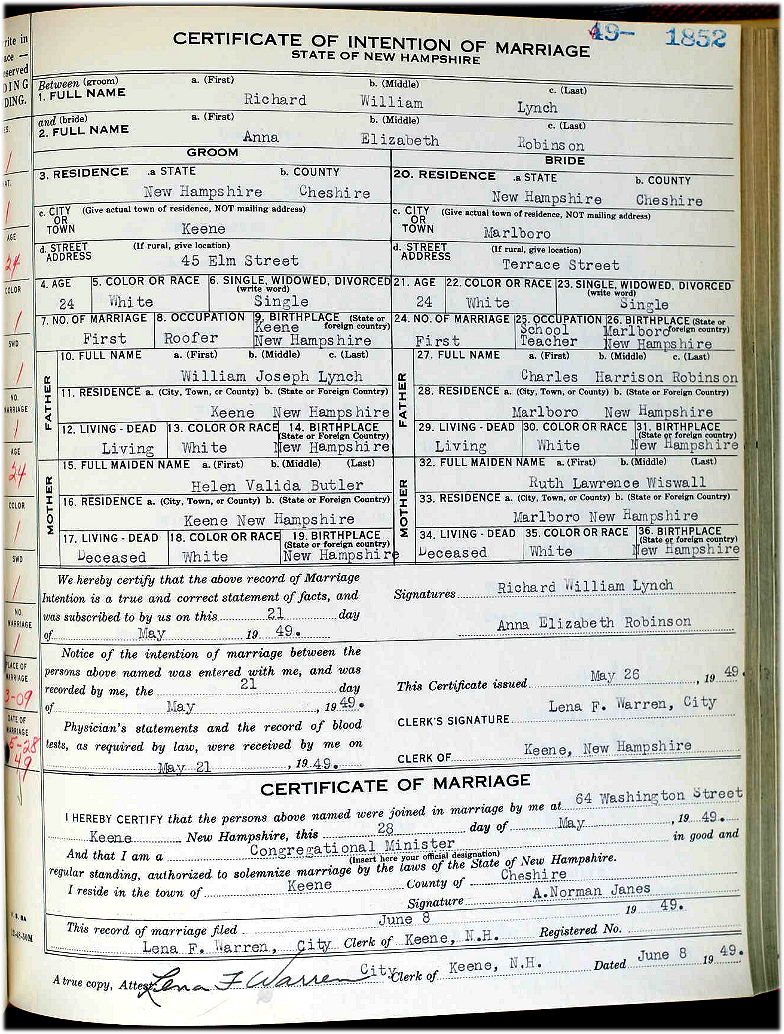 49- 1852
CERTIFICATE OF INTENTION OF MARRIAGE
STATE OF NEW HAMPSHIRE
Between (groom) a. (First) b. (Middle) c. (Last)
1. FULL NAME Richard William Lynch
and (bride) a. (First) b. (Middle) c. (Last)
2. FULL NAME Anna Elizabeth Robinson
GROOM BRIDE
3. RESIDENCE .a STATE b. COUNTY 20. RESIDENCE .a STATE b. COUNTY
New Hampshire Cheshire New Hampshire Cheshire
c. CITY (Give actual town of residence, NOT mailing address) c. CITY (Give actual town of residence, NOT mailing address)
OR OR
TOWN Keene TOWN Marlboro
d. STREET (If rural, give location) d. STREET (If rural, give location)
ADDRESS 45 Elm Street ADDRESS Terrace Street
4. AGE 5. COLOR OR RACE 6. SINGLE, WIDOWED, DIVORCED 21. AGE 22. COLOR OR RACE 23. SINGLE, WIDOWED, DIVORCED
(write word) (write word)
24 White Single 24 White Single
7. NO. OF MARRIAGE 8. OCCUPATION 9. BIRTHPLACE (State or foreign country) 24. NO. OF MARRIAGE 25. OCCUPATION 26. BIRTHPLACE (State or foreign country)
First Roofer Keene New Hampshire First School Teacher Marlboro New Hampshire
FATHER 10. FULL NAME a. (First) b. (Middle) c. (Last) FATHER 27. FULL NAME a. (First) b. (Middle) c. (Last)
William Joseph Lynch Charles Harrison Robinson
11. RESIDENCE a. (City, Town, or County) b. (State or Foreign Country) 28. RESIDENCE a. (City, Town, or County) b. (State or Foreign Country)
Keene New Hampshire Marlboro New Hampshire
12. LIVING - DEAD 13. COLOR OR RACE 14. BIRTHPLACE (State or Foreign Country) 29. LIVING - DEAD 30. COLOR OR RACE 31. BIRTHPLACE (State or foreign Country)
Living White New Hampshire Living White New Hampshire
MOTHER 15. FULL MAIDEN NAME a. (First) b. (Middle) (Last) MOTHER 32. FULL MAIDEN NAME a. (First) b. (Middle) (Last)
Helen Valida Butler Ruth Lawrence Wiswall
16. RESIDENCE a. (City, Town, or County) b. (State or Foreign Country) 33. RESIDENCE a. (City, Town, or County) b. (State or Foreign Country)
Keene New Hampshire Marlboro New Hampshire
17. LIVING - DEAD 18. COLOR OR RACE 19. BIRTHPLACE (State or foreign Country) 34. LIVING - DEAD 35. COLOR OR RACE 36. BIRTHPLACE (State or foreign Country)
Deceased White New Hampshire Deceased White New Hampshire
We hereby certify that the above record of Marriage
Intention is a true and correct statement of facts, and
was subscribed to by us on this 21 day
of May 19 49.
Signatures Richard William Lynch
Anna Elizabeth Robinson
Notice of the intention of marriage between the
persons above named was entered with me, and was
recorded by me, the 21 day
of May, 19 49.
Physician's statements and the record of blood
tests, as required by law, were received by me on
May 21, 19 49.
This Certificate issued May 26, 19 49.
CLERK'S SIGNATURE Lena F. Warren, City
CLERK OF Keene, New Hampshire
CERTIFICATE OF MARRIAGE
I HEREBY CERTIFY that the persons above named were joined in marriage by me at 64 Washington Street
Keene New Hampshire, this 28 day of May, 19 49.
And that I am a Congregational Minister in good and
(Insert here your official designation)
regular standing, authorized to solemnize marriage by the laws of the State of New Hampshire.
I reside in the town of Keene County of Cheshire
Signature A.Norman Janes
This record of marriage filed June 8 19 49.
Lena F. Warren, City Clerk of Keene, N.H. Registered No.
A true copy, Attest Lena F Warren City Clerk of Keene, N.H. Dated June 8 19 49.
rite in
ace —
eserved
DING
DING.
1
1
AGE
24
COLOR
1
SWD
1
NO.
MARRIAGE
1
AGE
24
COLOR
1
SWD
1
NO.
MARRIAGE
1
PLACE OF
MARRIAGE
3-09
DATE OF
MARRIAGE
5-28
49